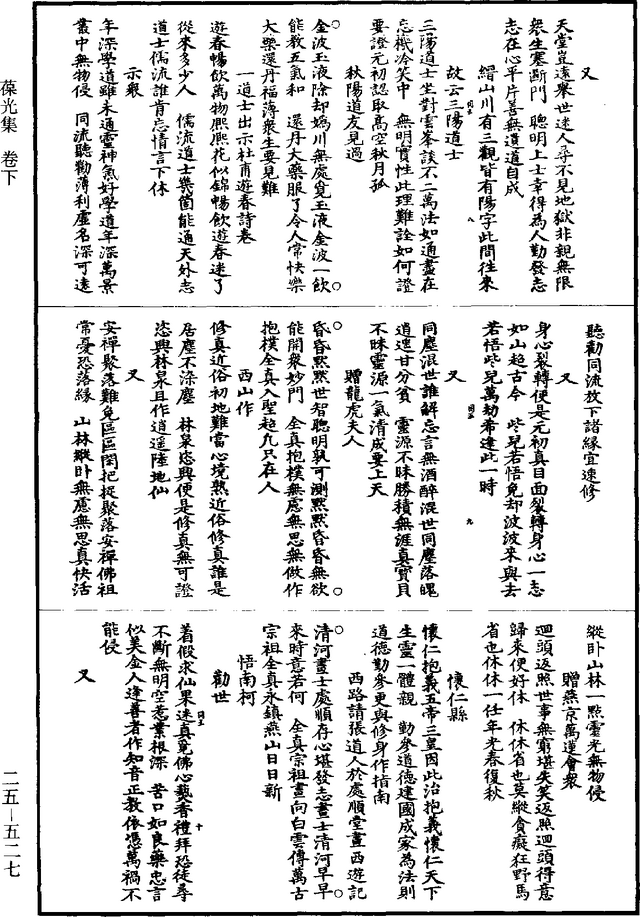 又
天堂豈遠舉世迷人尋不見地獄非親無限
衆生塞斷門 聰明上士幸得為人勤發志
志在心平片善無遺道自成
縉山川有三觀皆有陽字此間往來
故云三陽道士
三陽道士坐對雲峯談不二萬法如通盡在
忘機冷笑中 無明實性此理難詮如何證
要證元初認取高空秋月孤
秋陽道友見過
金波玉液除却嬀川無處覓玉液金波一飲
能教五氣和 還丹大藥服了令人常快樂
大藥還丹福薄衆生要見難
一道士出示杜甫遊春詩卷
遊春暢飲萬物熙熙花似錦暢飲遊春迷了
從來多少人 儒流道士幾箇能通天外志
道士儒流誰肯忘情言下休
示衆
年深學道雖未通靈神氣好學道年深萬景
叢中無物侵 同流聽勸薄利虛名深可遠
聽勸同流放下諸緣宜速修
又
身心裂轉便是元初真面目裂轉身心一志
如山超古今 些兒若悟免却波波來與去
若悟些兒萬劫希逢此一時
又
同塵混世誰解忘言無酒醉混世同塵落魄
逍遙甘分貧 靈源不昧勝積無涯真寶貝
不昧靈源一氣清成要上天
贈龍虎夫人
昏昏默默世智聰明孰可測默默昏昏無欲
能開衆妙門 全真抱樸無慮無思無做作
抱樸全真入聖超凡只在人
西山作
修真近俗初地難當心境熟近俗修真誰是
居塵不染塵 林泉恣興便是修真無可證
恣興林泉且作逍遙陸地仙
又
安禪聚落難免區區閑把捉聚落安禪佛祖
常憂恐落緣 山林縱卧無慮無思真快活
縱卧山林一點靈光無物侵
贈燕京萬蓮會衆
迴頭返照世事無窮堪失笑返照迴頭得意
歸來便好休 休休省也莫縱貪癡狂野馬
省也休休一任年光春復秋
懷仁縣
懷仁抱義五帝三皇因此治抱義懷仁天下
生靈一體親 勤參道德建國成家為法則
道德勤參更與修身作指南
西路請張道人於處順堂畫西遊記
清河畫士處順存心堪發志畫士清河早早
來時意若何 全真宗祖畫向白雲傳萬古
宗祖全真永鎮燕山日日新
悟南柯
勸世
着假求仙果迷真覓佛心藝香禮拜恐徒尋
不斷無明空惹業根深 苦口如良藥忠言
似美金人逢善者作知音正教依憑萬禍不
能侵
又
葆光集 卷下
二五—五二七